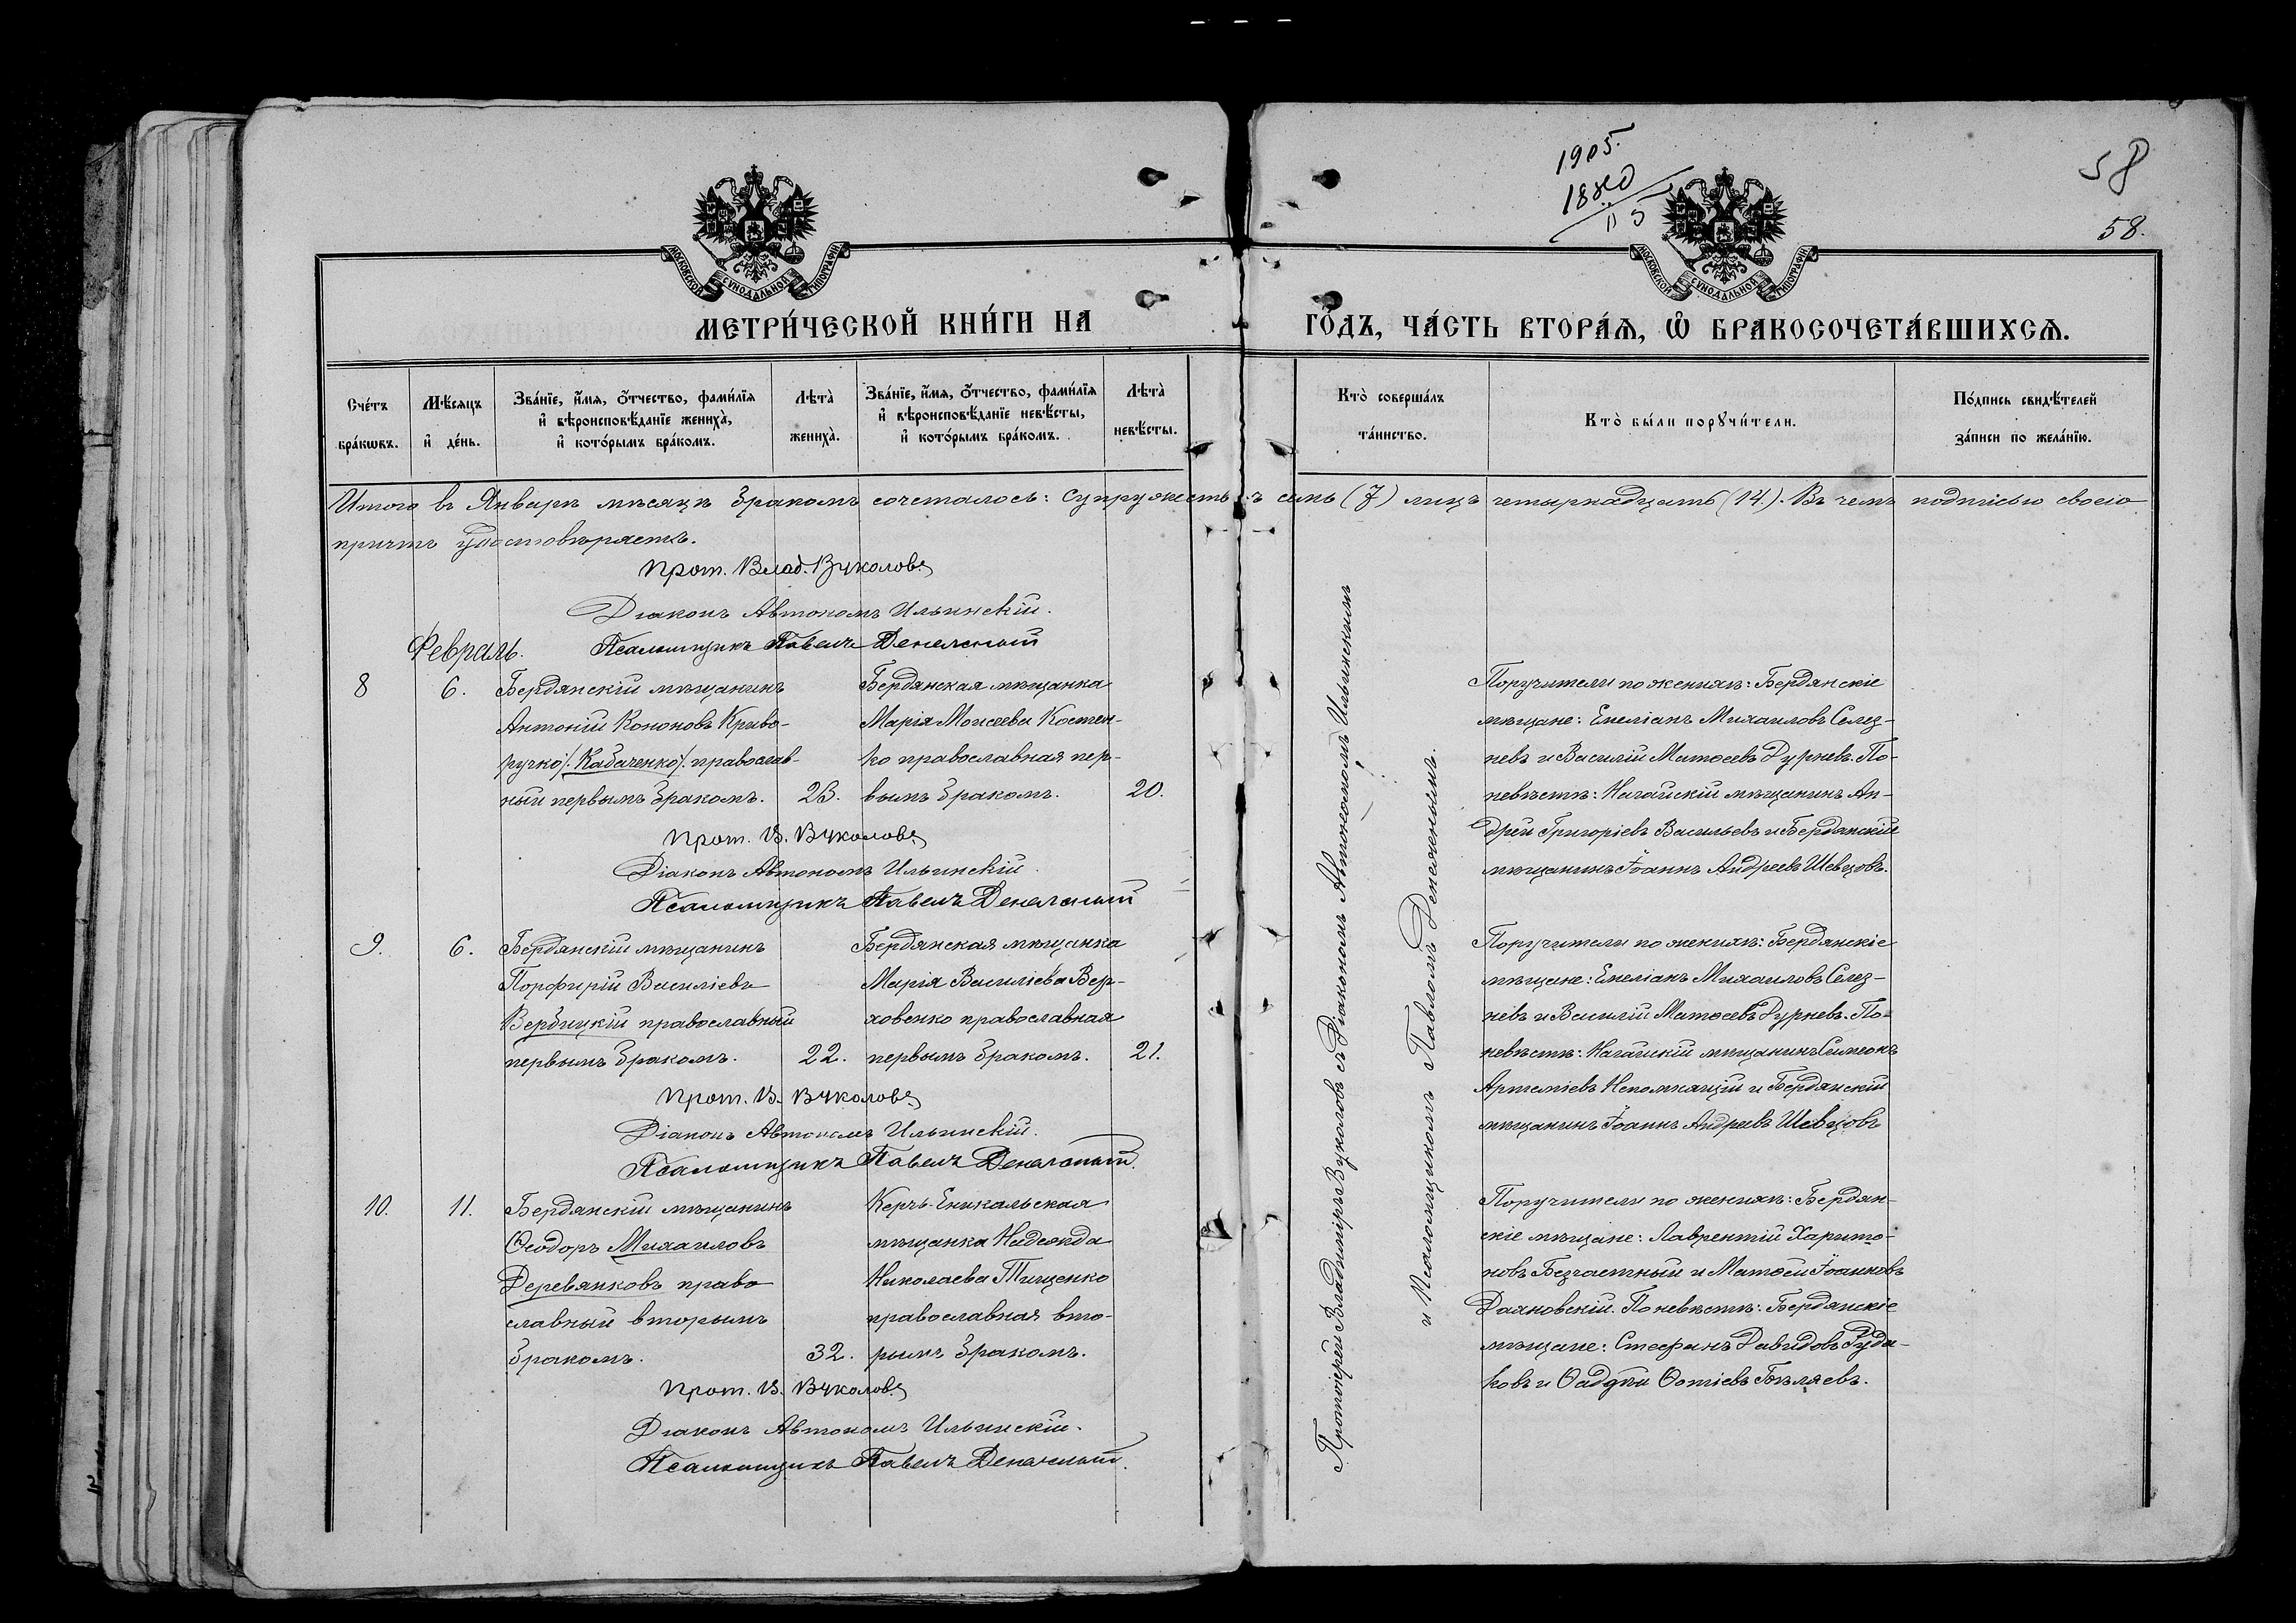 1905.
1880
58
58.
МОСКОВСКОЙ СѴНОДАЛЬНОЙ ТИПОГРАФІИ
МОСКОВСКОЙ СѴНОДАЛЬНОЙ ТИПОГРАФІИ
МЕТРИ́ЧЕСКОЙ КНИ́ГИ НА ГО́ДЪ, ЧА́СТЬ ВТОРА́Я, Ѡ БРАКОСОЧЕТА́ВШИХСЯ.
Сче́тъ бра́кѡвъ.
Мѣ́сяцъ и де́нь.
Зва́нїе, и́мя, о́тчество, фами́лїя
и вѣроисповѣ́данїе жениха̀,
и кото́рымъ бра́комъ.
Лѣта̀ жениха̀.
Зва́нїе, и́мя, о́тчество, фами́лїя
и вѣроисповѣ́данїе невѣ́сты,
и кото́рымъ бра́комъ.
Лѣта̀ невѣ́сты.
Кто̀ соверша́лъ та́инство.
Кто̀ бы́ли порꙋчи́тели.
По́дпись свидѣ́телей
за́писи по жела́нїю.
Итого въ Январѣ мѣсяцѣ бракомъ сочеталось: супружествъ семь (7) лицъ четырнадцать (14). Въ чемъ подписью своею
причтъ удостовѣряетъ.
Прот. Влад. Вуколовъ
Діаконъ Автономъ Ильинскій.
Псаломщикъ Павелъ Денежный
Февраль.
8
6.
Бердянскій мѣщанинъ
Антоній Кононовъ Криво-
ручко /: Кабаченко :/ православ-
ный первымъ бракомъ.
23.
Бердянская мѣщанка
Марія Моисеева Костен-
ко православная пер-
вымъ бракомъ.
20.
Поручители по женихѣ: Бердянскіе
мѣщане: Емеліанъ Михаиловъ Селез-
невъ и Василій Матѳеевъ Дурневъ. По-
невѣстѣ: Ногайскій мѣщанинъ Ан-
дрей Григоріевъ Васильевъ и Бердянскій
мѣщанинъ Іоаннъ Андреевъ Шевцовъ.
Прот. В. Вуколовъ
Діаконъ Автономъ Ильинскій.
Псаломщикъ Павелъ Денежный
9.
6.
Бердянскій мѣщанинъ
Порфирій Василіевъ
Вербицкій православный
первымъ бракомъ.
22.
Бердянская мѣщанка
Марія Василіева Вер-
ховенко православная
первымъ бракомъ.
21.
Поручители по женихѣ: Бердянскіе
мѣщане: Емеліанъ Михаиловъ Селез-
невъ и Василій Матѳеевъ Дурневъ. По-
невѣстѣ: Ногайскій мѣщанинъ Симеонъ
Артеміевъ Непомнящій и Бердянскій
мѣщанинъ Іоаннъ Андреевъ Шевцовъ
Прот. В. Вуколовъ
Діаконъ Автономъ Ильинскій.
Псаломщикъ Павелъ Денежный.
10.
11.
Бердянскій мѣщанинъ
Ѳеодоръ Михаиловъ
Деревянковъ право
славный вторымъ
бракомъ.
32.
Керчь-Еникальская
мѣщанка Надежда
Николаева Тищенко
православная вто-
рымъ бракомъ.
Поручители по женихѣ: Бердян-
скіе мѣщане: Лаврентій Харито-
новъ Безчастный и Матѳей Іоанновъ
Даяновскій. По невѣстѣ: Бердянскіе
мѣщане: Стефанъ Давидовъ Руда-
ковъ и Ѳаддей Ѳотіевъ Бѣляевъ.
Прот. В. Вуколовъ
Діаконъ Автономъ Ильинскій.
Псаломщикъ Павелъ Денежный.
Протоіерей Владиміръ Вуколовъ съ Діакономъ Автономомъ Ильинскимъ
и Псаломщикомъ Павломъ Денежнымъ.